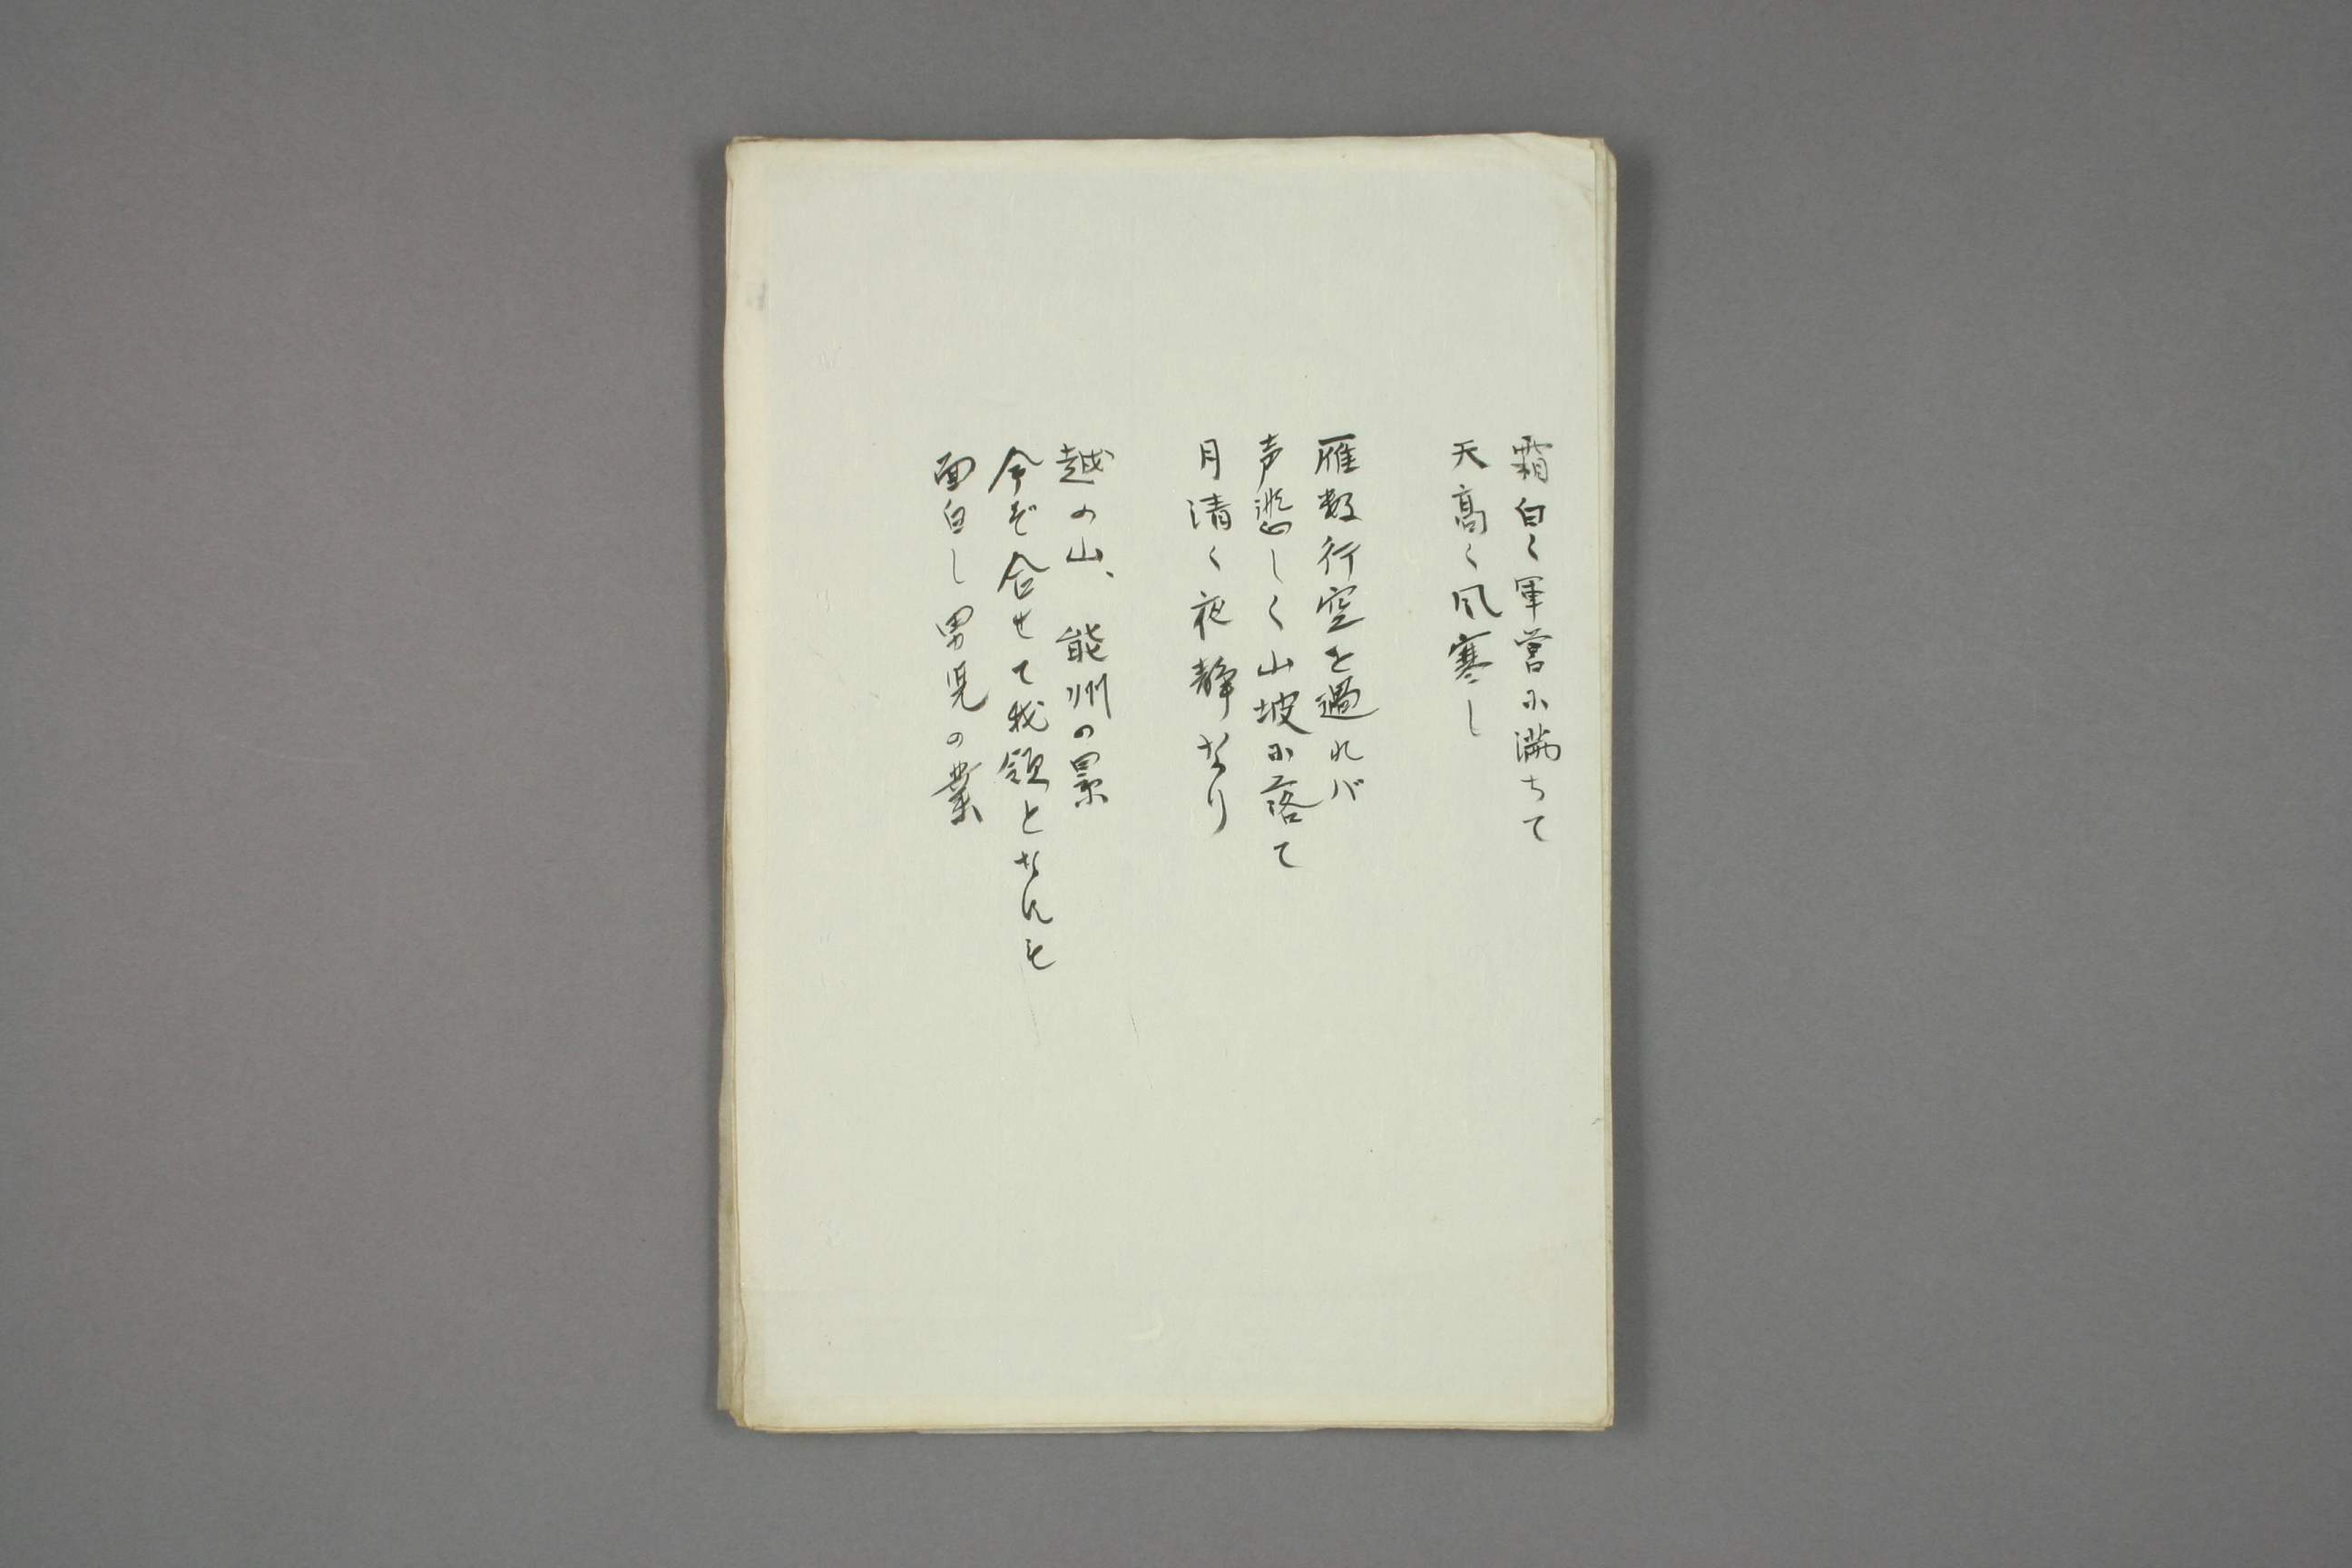 霜白く軍営に満ちて
天高く風寒し
雁数行空を過れバ
声悲しく山坡に落て
月清く夜静なり
越の山、能州の景
今ぞ合せて我領となんも
面白し男児の業